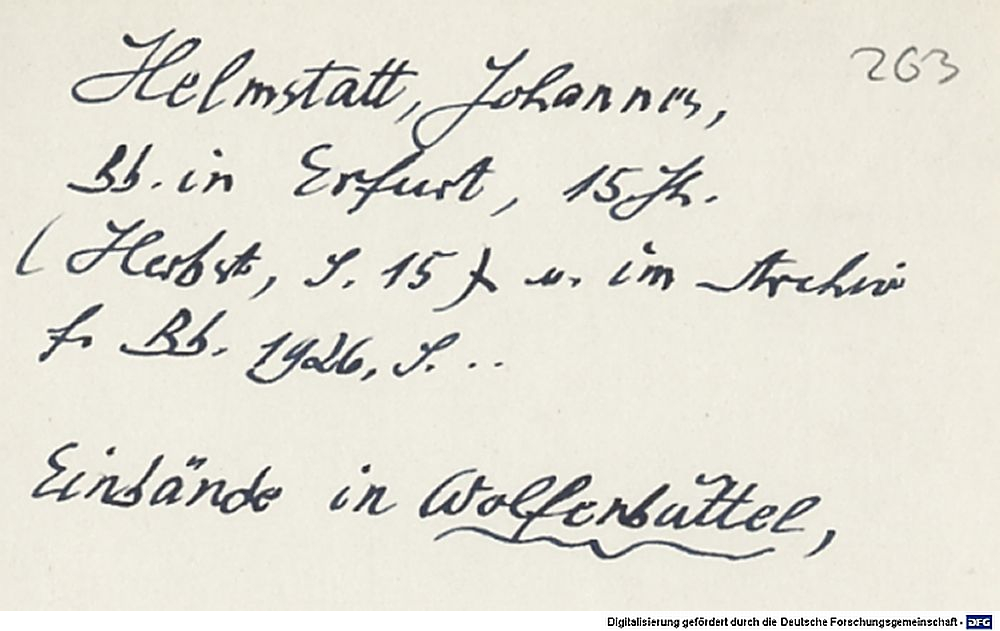 263
Helmstatt, Johannes,
Bb. in Erfurt, 15 Jh.
(Herbst, S. 15) u. im Archiv
f. Bb. 1926, S. ..
Einbände in Wolfenbüttel,
Digitalisierung gefördert durch die Deutsche Forschungsgemeinschaft - DFG